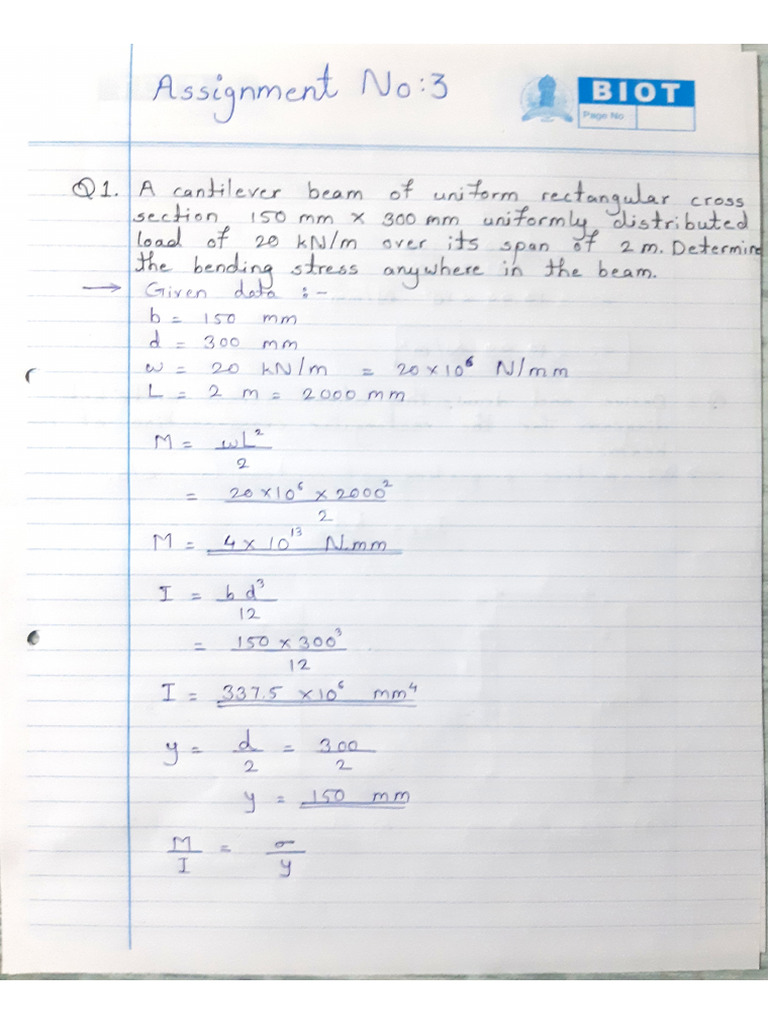 Assignment No:3
BIOT
Page No
Q1. A cantilever beam of uniform rectangular cross
section 150 mm x 300 mm uniformly distributed
load of 20 kN/m over its span of 2 m. Determine
the bending stress anywhere in the beam.
→ Given data :-
b = 150 mm
d = 300 mm
w = 20 kN/m = 20 x 10⁶ N/mm
L = 2 m = 2000 mm
M = wL²
2
= 20 x 10⁶ x 2000²
2
M = 4 x 10¹³ N.mm
I = bd³
12
= 150 x 300³
12
I = 337.5 x 10⁶ mm⁴
y = d = 300
2 2
y = 150 mm
M = σ
I y